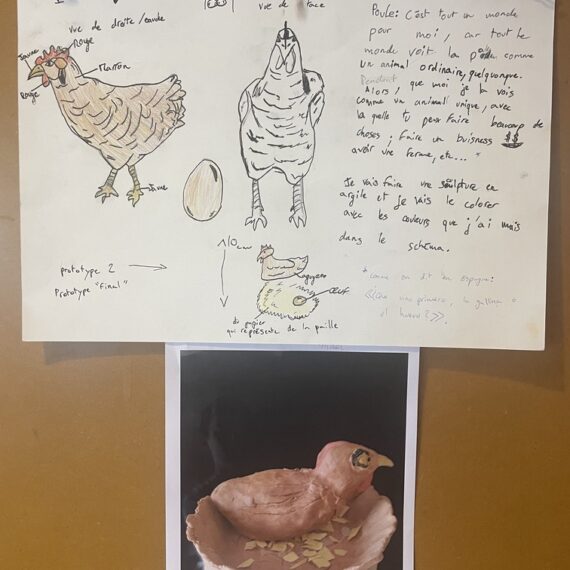 vue de droite/gauche
vue de face
Jaune
Rouge
Marron
Rouge
Jaune
Poule: C'est tout un monde
pour moi, car tout le
monde voit la poule comme
un animal ordinaire, quelquonque.
Alors, que moi je la vois
comme un animal unique, avec
la quelle tu peux faire beaucoup de
choses: faire un buisness $$
avoir une ferme, etc... *
Je vais faire une sculpture en
argile et je vais le colorer
avec les couleurs que j'ai mais
dans le schéma.
prototype 2
Prototype "final"
10cm
œuf
du papier
qui représente de la paille
* comme on dit en espagnol:
primero, la gallina o
el huevo?>>.